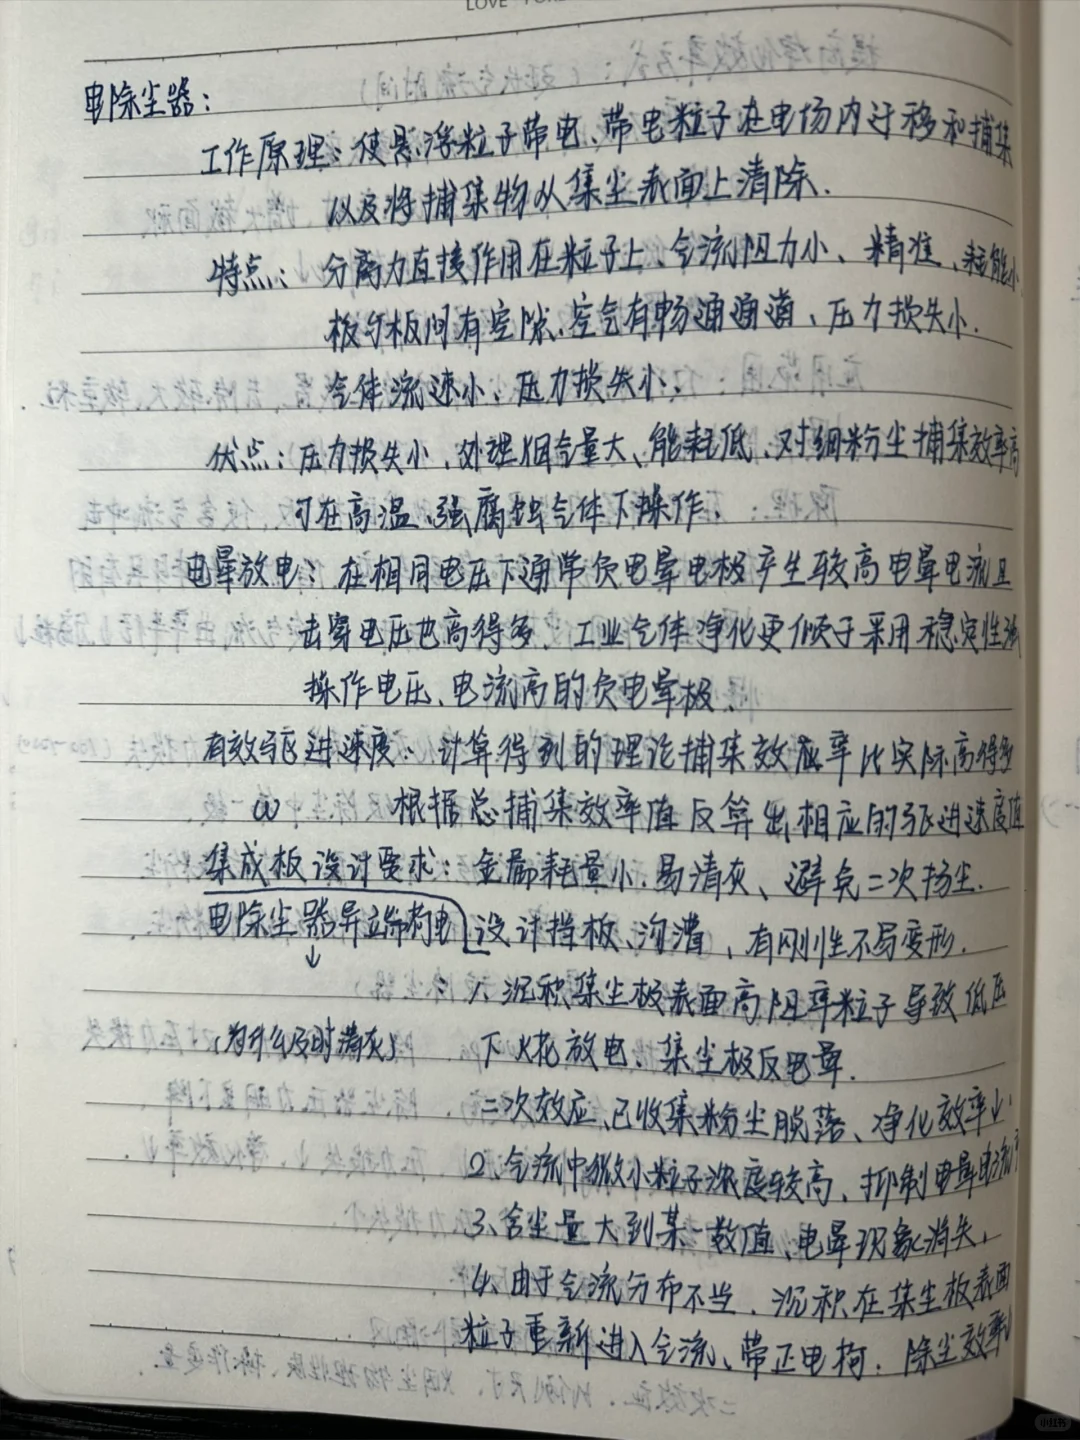 电除尘器：
工作原理：使悬浮粒子带电、带电粒子在电场内迁移和捕集
以及将捕集物从集尘表面上清除.
特点： 分离力直接作用在粒子上、气流阻力小、精准、耗能小
板与板间有空隙.空气有畅通通道、压力损失小.
气体流速小、压力损失小、
优点：压力损失小、处理烟气量大、能耗低、对细粉尘捕集效率高
可在高温、强腐蚀气体下操作.
电晕放电：在相同电压下通常负电晕电极产生较高电晕电流且
击穿电压也高得多、工业气体净化更倾于采用稳定性强
操作电压、电流高的负电晕极、
有效驱进速度：计算得到的理论捕集效率比实际高得多
ω 根据总捕集效率值反算出相应的驱进速度值
集成板设计要求：金属耗量小.易清灰、避免二次扬尘.
电除尘器异端构电 设计挡板、沟漕、有刚性不易变形.
↓ 1、沉积集尘极表面高阻率粒子导致低压
(为什么及时清灰) 下火花放电、集尘极反电晕.
二次效应、已收集粉尘脱落、净化效率↓
2、气流中微小粒子浓度较高、抑制电晕电流
3、含尘量大到某一数值、电晕现象消失、
4、由于气流分布不当、沉积在集尘板表面
粒子重新进入气流、带正电荷.除尘效率↓